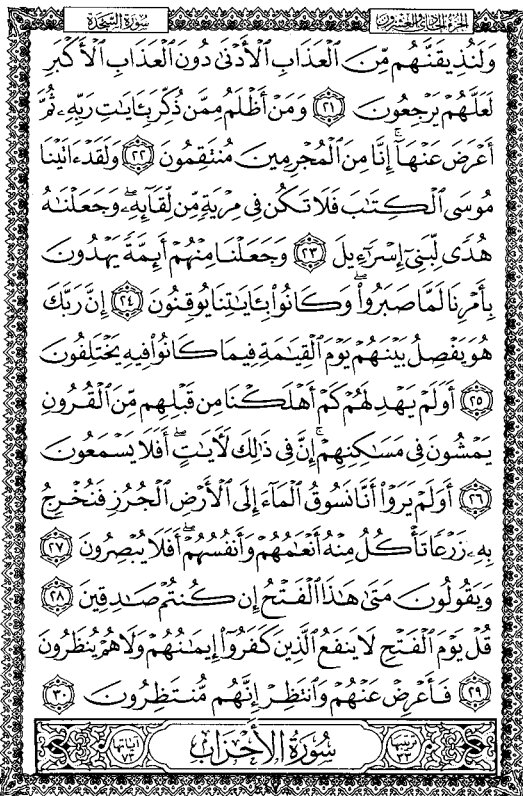 الجزء الحادي والعشرون
سورة السجدة
وَلَنُذِيقَنَّهُم مِّنَ ٱلْعَذَابِ ٱلْأَدْنَىٰ دُونَ ٱلْعَذَابِ ٱلْأَكْبَرِ
لَعَلَّهُمْ يَرْجِعُونَ ٢١ وَمَنْ أَظْلَمُ مِمَّن ذُكِّرَ بِـَٔايَـٰتِ رَبِّهِۦ ثُمَّ
أَعْرَضَ عَنْهَآ ۚ إِنَّا مِنَ ٱلْمُجْرِمِينَ مُنتَقِمُونَ ٢٢ وَلَقَدْ ءَاتَيْنَا
مُوسَى ٱلْكِتَـٰبَ فَلَا تَكُن فِى مِرْيَةٍ مِّن لِّقَآئِهِۦ ۖ وَجَعَلْنَـٰهُ
هُدًى لِّبَنِىٓ إِسْرَٰٓءِيلَ ٢٣ وَجَعَلْنَا مِنْهُمْ أَئِمَّةً يَهْدُونَ
بِأَمْرِنَا لَمَّا صَبَرُوا۟ ۖ وَكَانُوا۟ بِـَٔايَـٰتِنَا يُوقِنُونَ ٢٤ إِنَّ رَبَّكَ
هُوَ يَفْصِلُ بَيْنَهُمْ يَوْمَ ٱلْقِيَـٰمَةِ فِيمَا كَانُوا۟ فِيهِ يَخْتَلِفُونَ
٢٥ أَوَلَمْ يَهْدِ لَهُمْ كَمْ أَهْلَكْنَا مِن قَبْلِهِم مِّنَ ٱلْقُرُونِ
يَمْشُونَ فِى مَسَـٰكِنِهِمْ ۚ إِنَّ فِى ذَٰلِكَ لَـَٔايَـٰتٍ ۖ أَفَلَا يَسْمَعُونَ
٢٦ أَوَلَمْ يَرَوْا۟ أَنَّا نَسُوقُ ٱلْمَآءَ إِلَى ٱلْأَرْضِ ٱلْجُرُزِ فَنُخْرِجُ
بِهِۦ زَرْعًا تَأْكُلُ مِنْهُ أَنْعَـٰمُهُمْ وَأَنفُسُهُمْ ۖ أَفَلَا يُبْصِرُونَ ٢٧
وَيَقُولُونَ مَتَىٰ هَـٰذَا ٱلْفَتْحُ إِن كُنتُمْ صَـٰدِقِينَ ٢٨
قُلْ يَوْمَ ٱلْفَتْحِ لَا يَنفَعُ ٱلَّذِينَ كَفَرُوٓا۟ إِيمَـٰنُهُمْ وَلَا هُمْ يُنظَرُونَ
٢٩ فَأَعْرِضْ عَنْهُمْ وَٱنتَظِرْ إِنَّهُم مُّنتَظِرُونَ ٣٠
ترتيبها ٣٣ سُورَةُ الأَحْزَابِ آياتها ٧٣